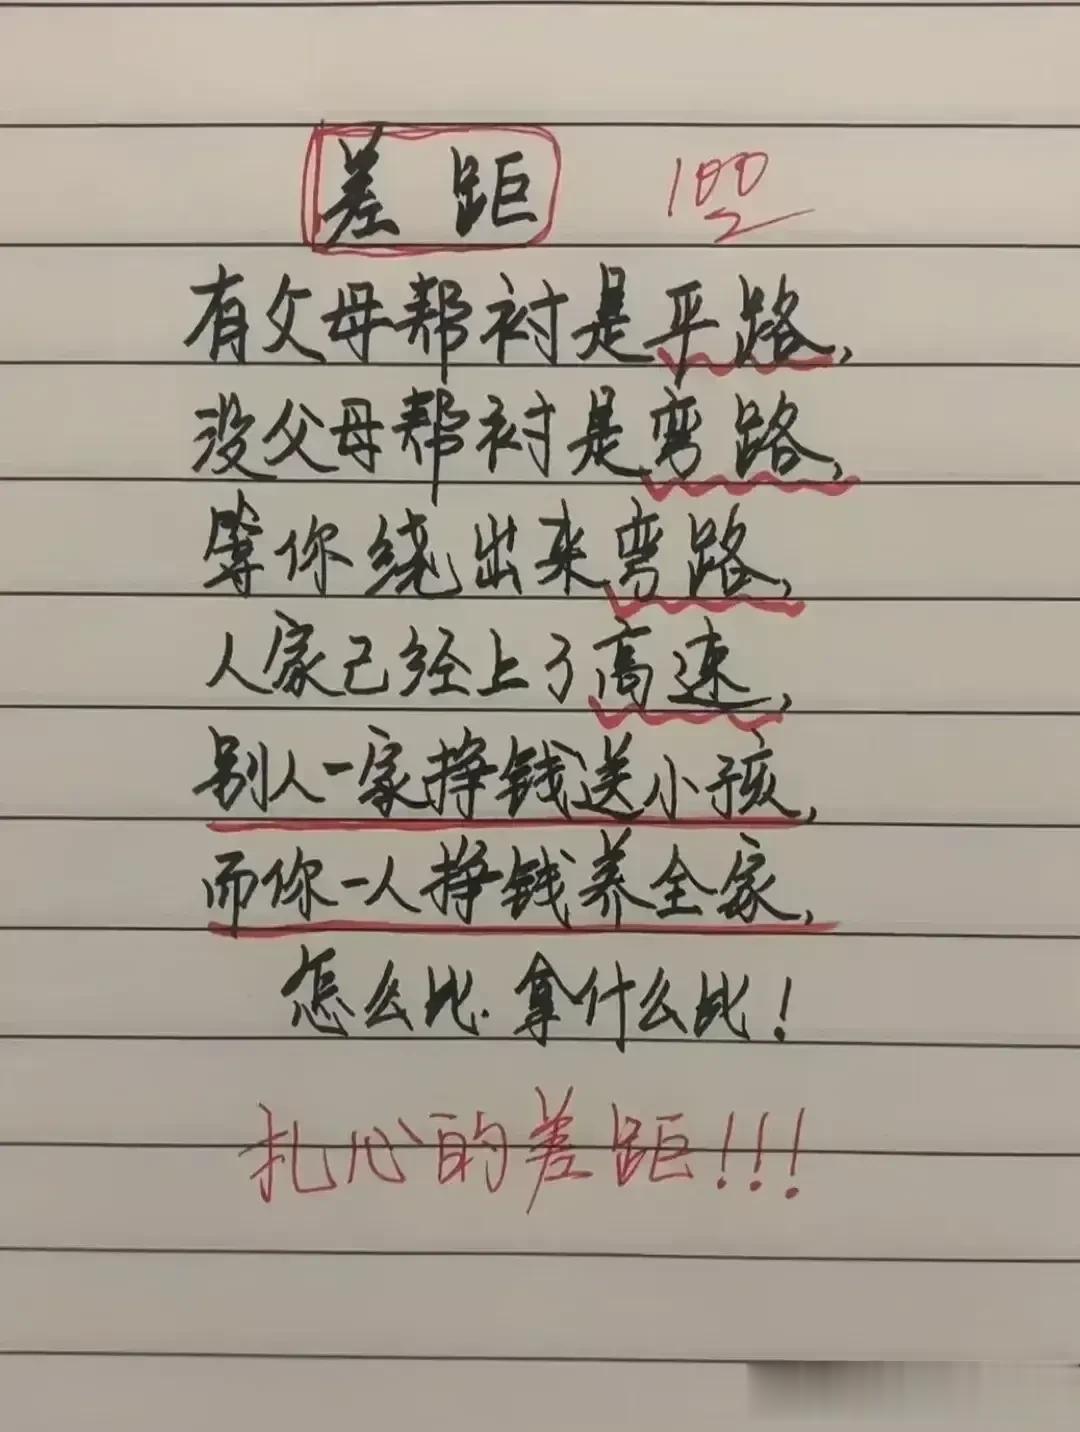 差距 100
有父母帮衬是平路,
没父母帮衬是弯路,
等你绕出来弯路,
人家已经上了高速,
别人一家挣钱送小孩,
而你一人挣钱养全家,
怎么比.拿什么比!
扎心的差距!!!